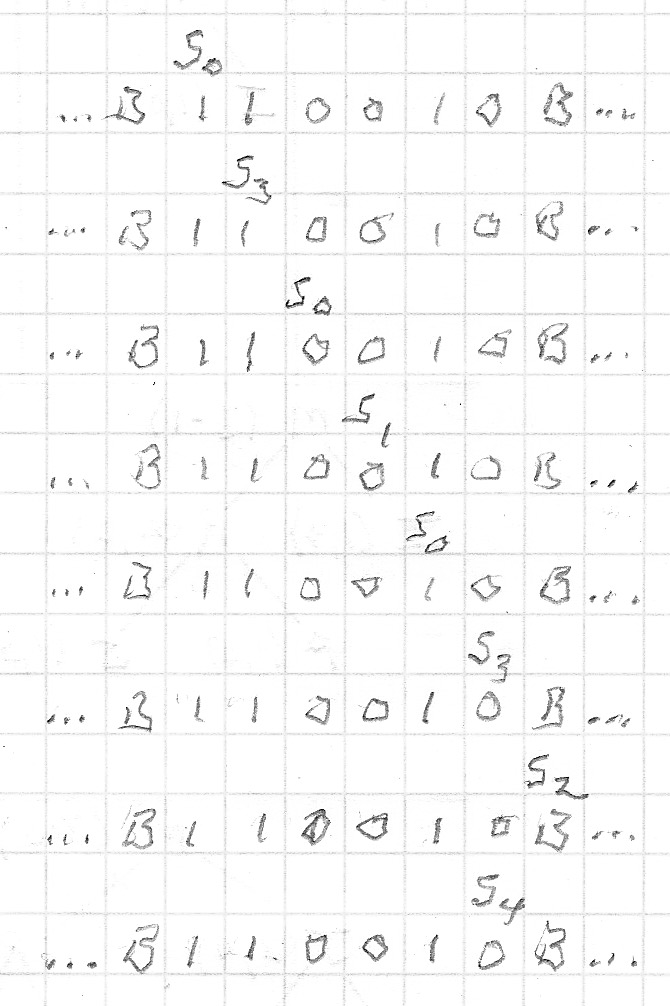 S₀
... B 1 1 0 0 1 0 B ...
S₃
... B 1 1 0 0 1 0 B ...
S₀
... B 1 1 0 0 1 0 B ...
S₁
... B 1 1 0 0 1 0 B ...
S₀
... B 1 1 0 0 1 0 B ...
S₃
... B 1 1 0 0 1 0 B ...
S₂
... B 1 1 0 0 1 0 B ...
S₄
... B 1 1 0 0 1 0 B ...